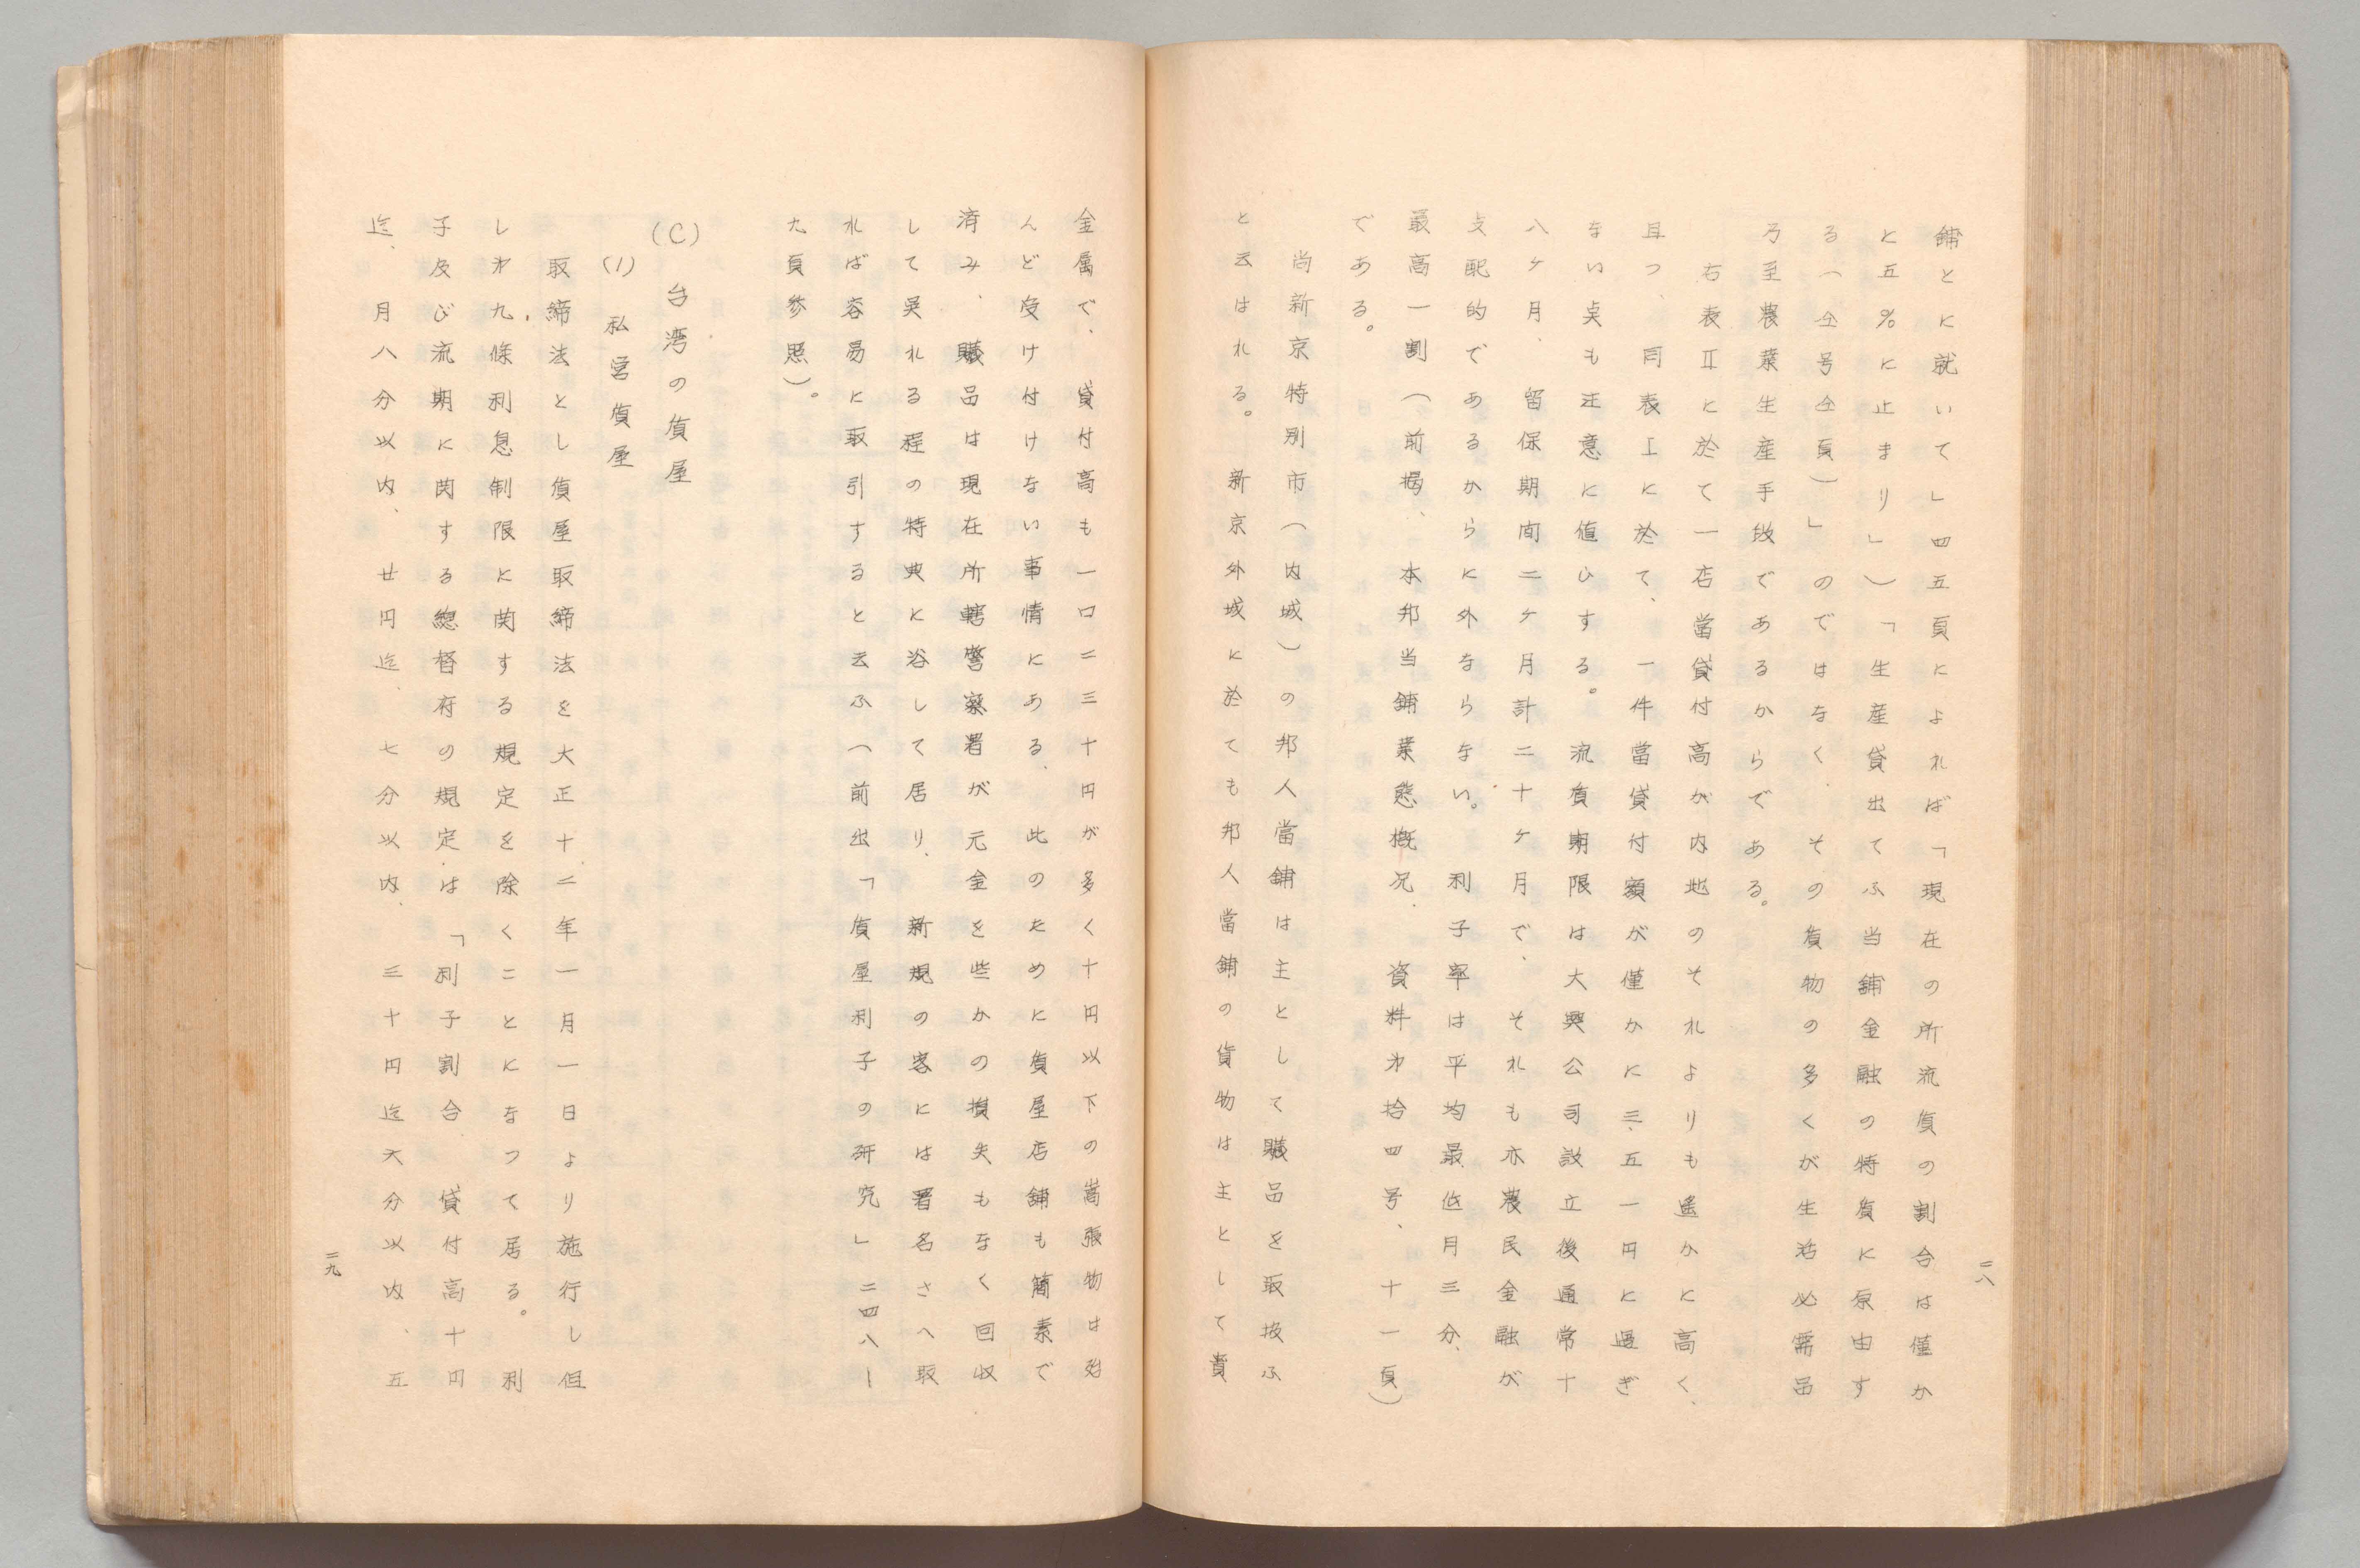 舖とに就いて」四五頁によれば「現在の所流質の割合は僅か
と五％に止まり」）「生産貸出てふ当舖金融の特質に原由す
る（仝号仝頁）」のではなく、その質物の多くが生活必需品
乃至農業生産手段であるからである。
右表Ⅱに於て一店當貸付高が内地のそれよりも遥かに高く、
且つ、同表Ⅰに於て、一件當貸付額が僅かに三、五一円に過ぎ
ない点も注意に値ひする。流質期限は大興公司設立後通常十
八ケ月、留保期間二ケ月計二十ケ月で、それも亦農民金融が
支配的であるからに外ならない。利子率は平均最低月三分、
最高一割（前掲、本邦当舖業態概況、資料第拾四号、十一頁）
である。
尚新京特別市（内城）の邦人當舖は主として贓品を取扱ふ
と云はれる。新京外城に於ても邦人當舖の貨物は主として貴
二八
金属で、貸付高も一口二三十円が多く十円以下の嵩張物は殆
んど受け付けない事情にある、此のために質屋店舖も簡素で
済み、贓品は現在所轄警察署が元金を些かの損失もなく回収
して呉れる程の特典に浴して居り、新規の客には署名さへ取
れば容易に取引すると云ふ（前出「質屋利子の研究」二四八ー
九頁参照）。
(C) 台湾の質屋
(1) 私営質屋
取締法とし質屋取締法を大正十二年一月一日より施行し但
し第九條利息制限に関する規定を除くことになつて居る。利
子及び流期に関する總督府の規定は「利子割合、貸付高十円
迄、月八分以内、廿円迄、七分以内、三十円迄六分以内、五
二九